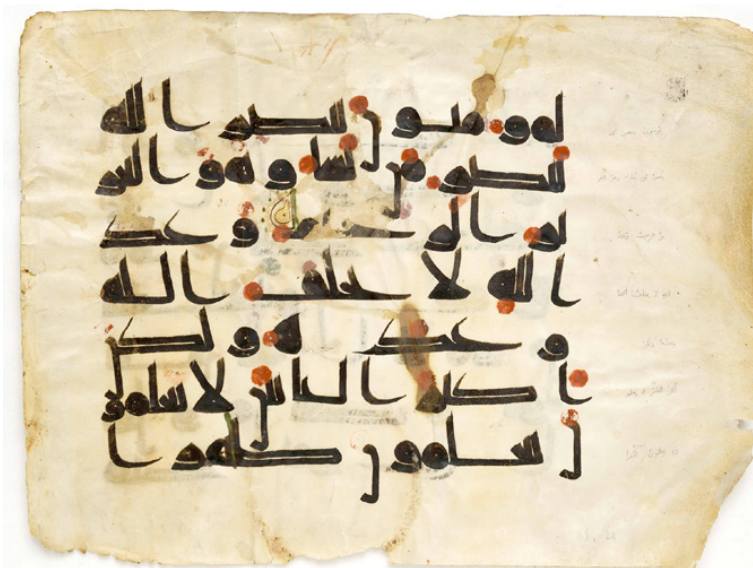 لمومنون بنصر الله
ينصر من يشا وهو العز
يز الرحيم وعد
الله لا يخلف الله
وعده ولكن
اكثر الناس لا يعلمو
ن يعلمون ظهرا